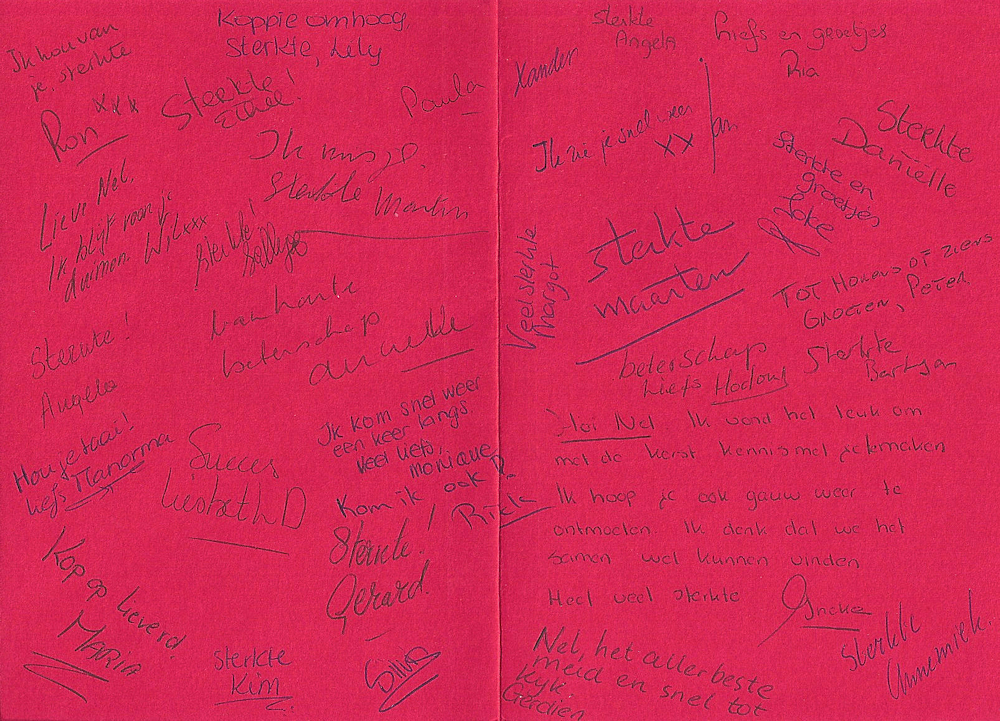 Ik hou van
je, sterkte
Ron xxx
Koppie omhoog,
Sterkte, Lily
Sterkte!
Paula
Ik mis je.
Sterkte Martin
Lieve Nel,
Ik
duimen Wil xxx
Sterkte!
Van harte
beterschap
Sterkte!
Angela
Hou je taai!
liefs
Succes
Liesbeth D
Ik kom snel weer
een keer langs
Veel liefs,
Monique
Kom ik ook
Sterkte!
Gerard.
Kop op lieverd.
MARIA
Sterkte
Kim
Xander
Sterkte
Angela
Liefs en groetjes
Ria
Ik zie je snel weer
xx Jan
Sterkte
Daniëlle
Sterkte en
groetjes,
Joke
Veel sterkte
Margot
Sterkte
Maarten
TOT HORENS OF ZIENS
GROETEN, PETER
beterschap
Liefs
Sterkte
Bartjan
Hoi Nel Ik vond het leuk om
met de kerst kennis met je te maken
Ik hoop je ook gauw weer te
ontmoeten. Ik denk dat we het
samen wel kunnen vinden
Heel veel sterkte
Nel, het allerbeste
meid en snel tot
kijk
Gerdien
Sterkte
Annemiek.